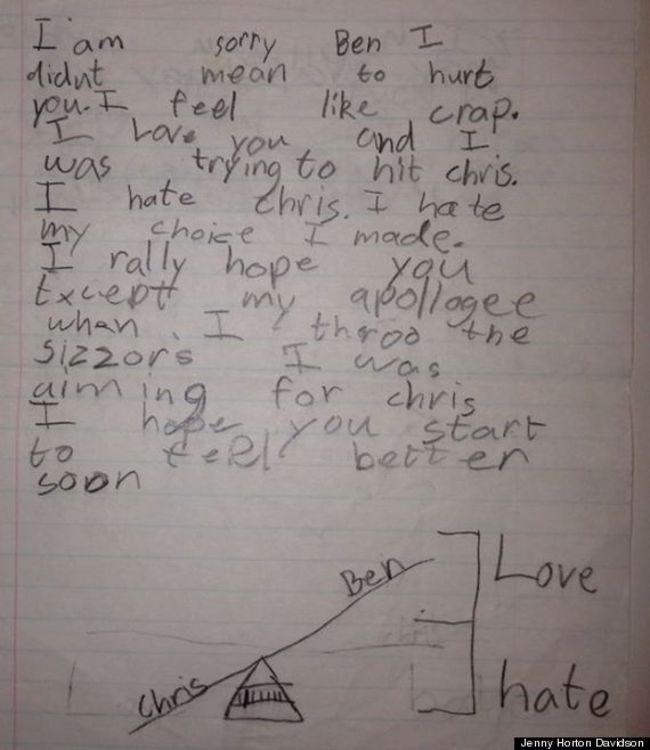 I am sorry Ben I
didnt mean to hurt
you. I feel like crap.
I Love you and I
was trying to hit chris.
I hate chris. I hate
my choice I made.
I rally hope you
Except my apollogee
when I throo the
sizzors I was
aiming for chris
I hope you start
to feel better
soon
Ben
Love
Chris
hate
Jenny Horton Davidson